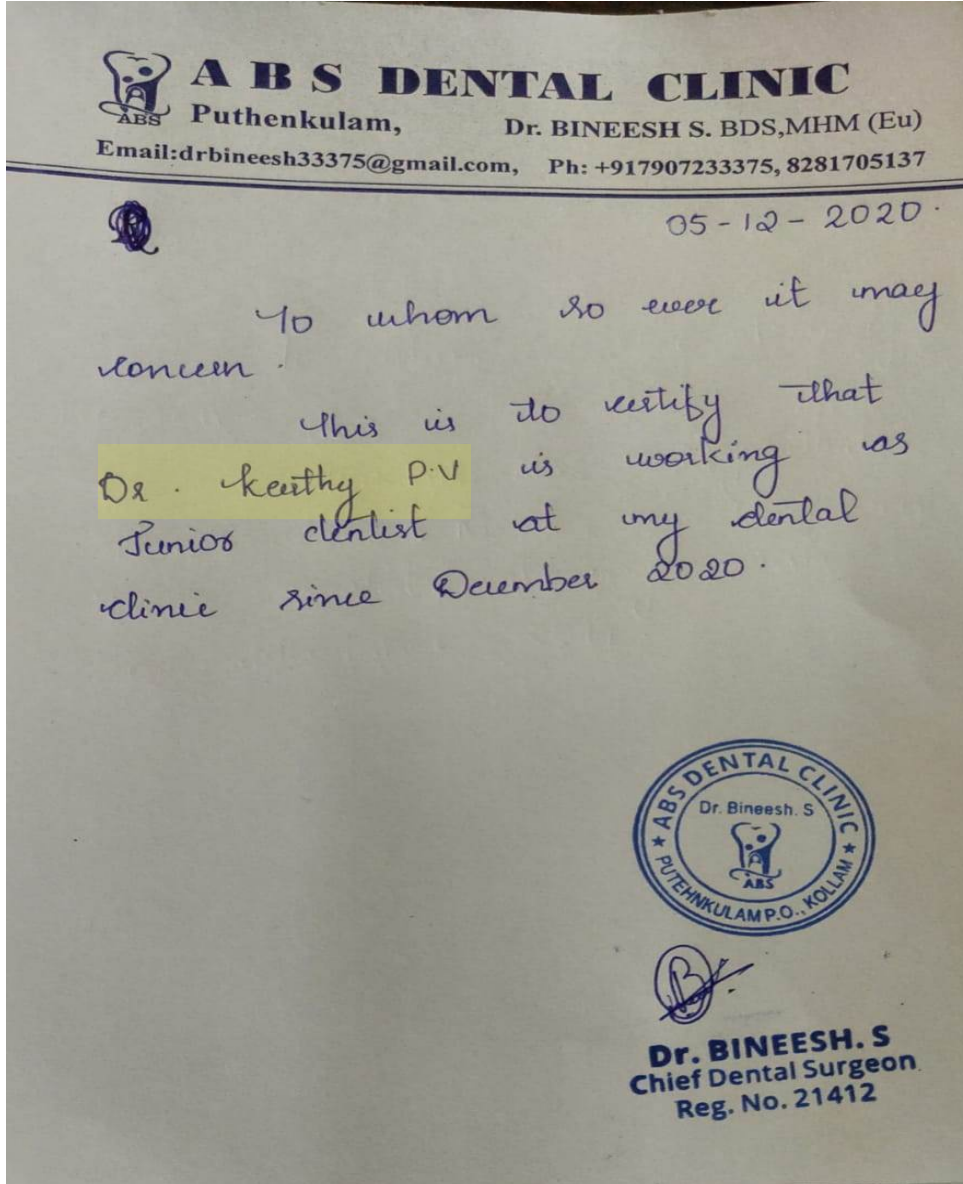 ABS DENTAL CLINIC
ABS
Puthenkulam, Dr. BINEESH S. BDS,MHM (Eu)
Email:drbineesh33375@gmail.com, Ph: +917907233375, 8281705137
05-12-2020.
To whom so ever it may
concern.
This is to certify that
Dr. Keerthy P.V is working as
Junior dentist at my dental
clinic since December 2020.
ABS DENTAL CLINIC
Dr. Bineesh. S
ABS
PUTEHNKULAM P.O., KOLLAM
Dr. BINEESH. S
Chief Dental Surgeon
Reg. No. 21412